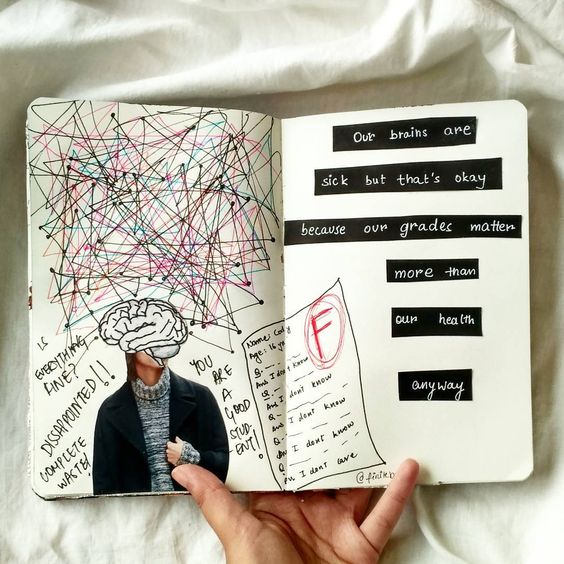 IS
EVERYTHING
FINE?
DISSAPOINTED!!
COMPLETE
WASTE!
YOU
ARE
A
GOOD
STUD-
ENT!
Name: Cody
Age: 16
Q -
Ans I don't know
Q -
Ans I don't know
Q -
I dont know
Q -
I dont know
Q -
I dont care
F
Our brains are
sick but that's okay
because our grades matter
more than
our health
anyway